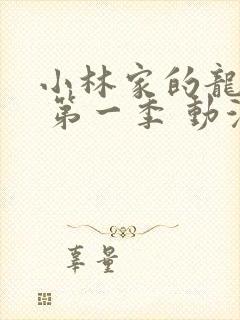 小林家的龍
第一季 動漫
辜量